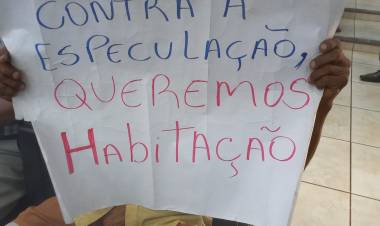 CONTRA A
ESPECULAÇÃO,
QUEREMOS
HABITAÇÃO